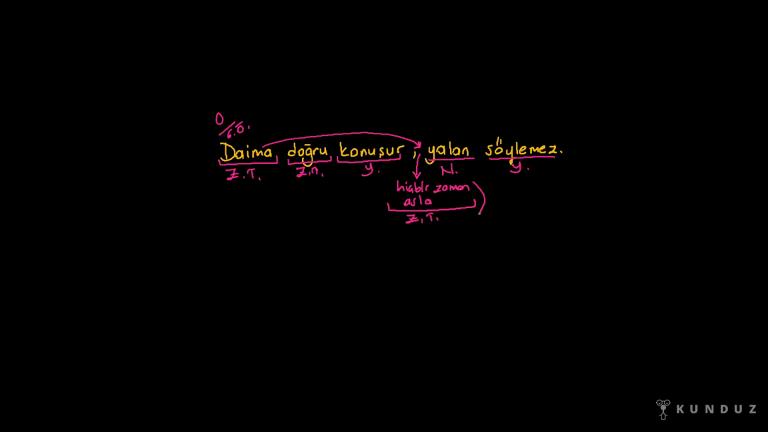 O/G.Ö.
Daima doğru konuşur, yalan söylemez.
Z.T. Z.T. Y. N. Y.
hiçbir zaman
asla
Z.T.
KUNDUZ